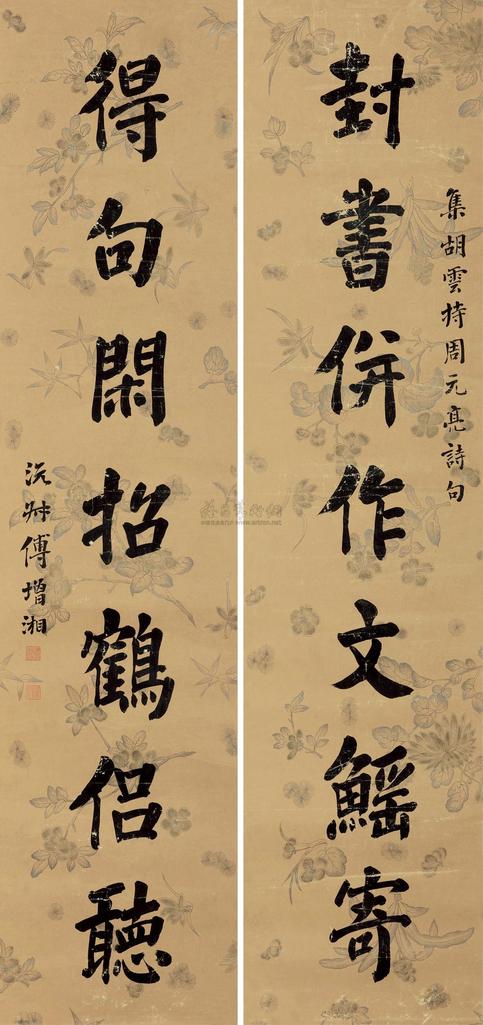 集胡雲持周元亮詩句
封書併作文鰩寄
得句閑招鶴侶聽
沅叔傅增湘
www.artron.net